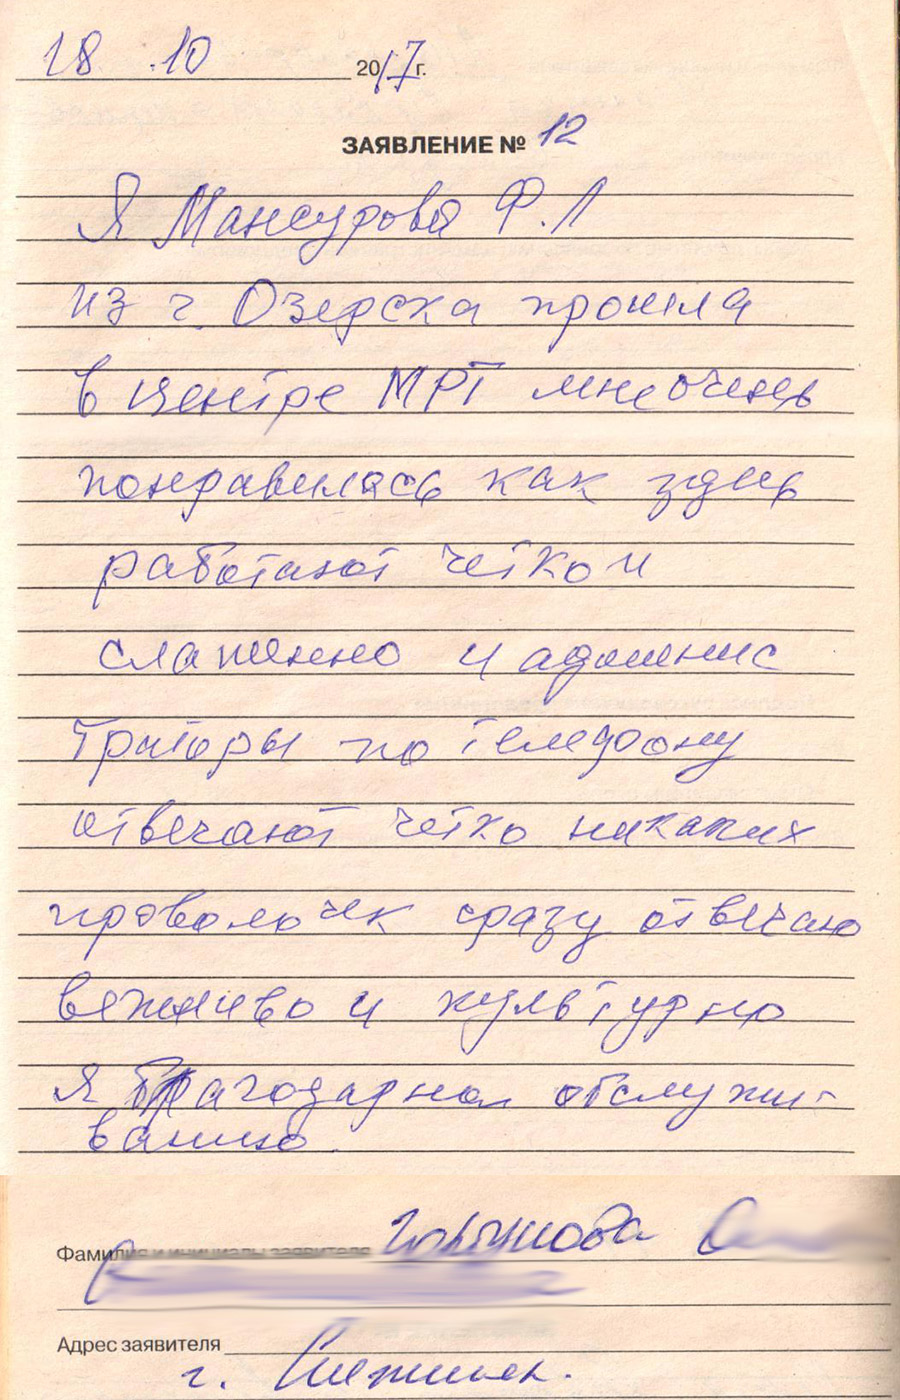 18.10 2017г.
ЗАЯВЛЕНИЕ № 12
Я Мансурова Ф.Л
из г. Озерска прошла
в центре МРТ мне очень
понравилась как здесь
работают четко и
слаженно и админис
траторы по телефону
отвечают четко никаких
проволочек сразу отвечаю
вежливо и культурно
я благодарна обслужи-
ванию.
Фамилия и инициалы заявителя
Адрес заявителя
г. Снежинск.